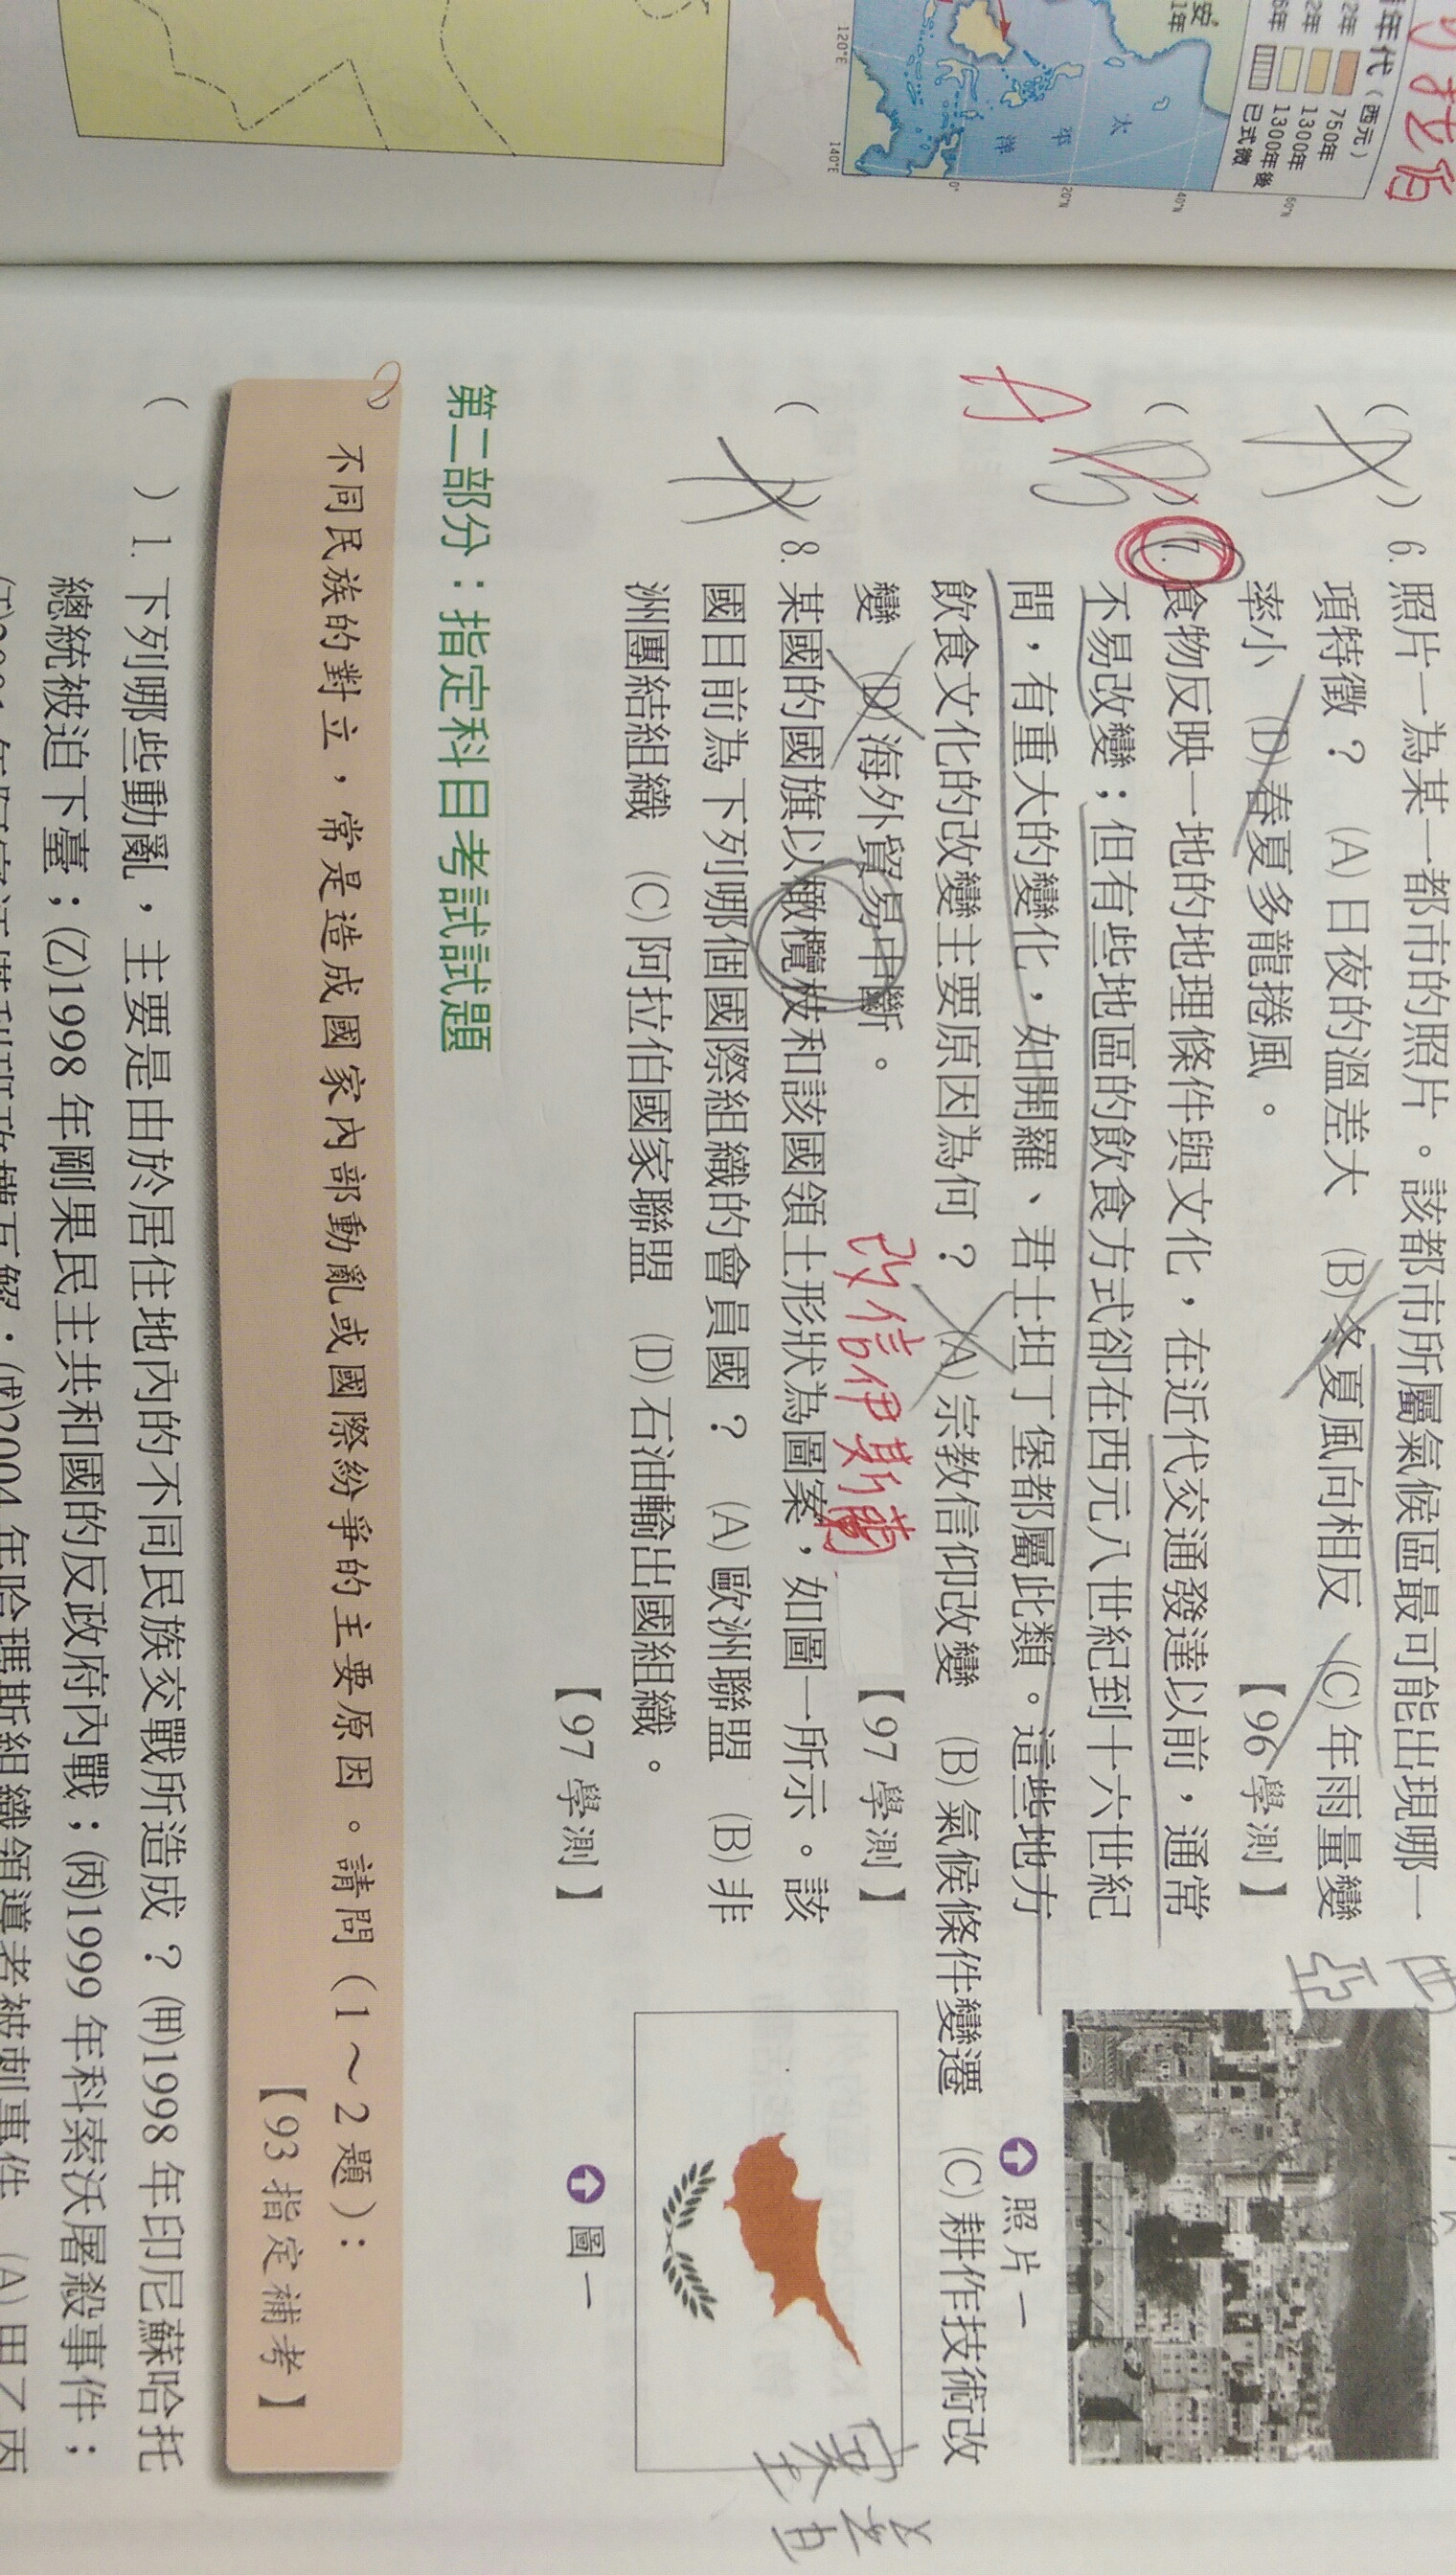 年代（西元）
2年 750年
2年 1300年
6年 1300年後
已式微
安
1年
太
平
洋
120°E
140°E
0°
20°N
40°N
60°N
(A) 6. 照片一為某一都市的照片。該都市所屬氣候區最可能出現哪一
項特徵？ (A)日夜的溫差大 (B)冬夏風向相反 (C)年雨量變
率小 (D)春夏多龍捲風。 【96 學測】
西
亞
照片一
A
(B) 7. 食物反映一地的地理條件與文化，在近代交通發達以前，通常
不易改變；但有些地區的飲食方式卻在西元八世紀到十六世紀
間，有重大的變化，如開羅、君士坦丁堡都屬此類。這些地方
飲食文化的改變主要原因為何？ (A)宗教信仰改變 (B)氣候條件變遷 (C)耕作技術改
變 (D)海外貿易中斷。 改信伊斯蘭 【97 學測】
(A) 8. 某國的國旗以橄欖枝和該國領土形狀為圖案，如圖一所示。該
國目前為下列哪個國際組織的會員國？ (A)歐洲聯盟 (B)非
洲團結組織 (C)阿拉伯國家聯盟 (D)石油輸出國組織。
【97 學測】
圖一
第二部分：指定科目考試試題
不同民族的對立，常是造成國家內部動亂或國際紛爭的主要原因。請問（1～2題）：
【93 指定補考】
( ) 1. 下列哪些動亂，主要是由於居住地內的不同民族交戰所造成？(甲)1998 年印尼蘇哈托
總統被迫下臺；(乙)1998 年剛果民主共和國的反政府內戰；(丙)1999 年科索沃屠殺事件；
(戊)2004 年哈瑪斯組織領導者被刺事件 (A)甲乙丙